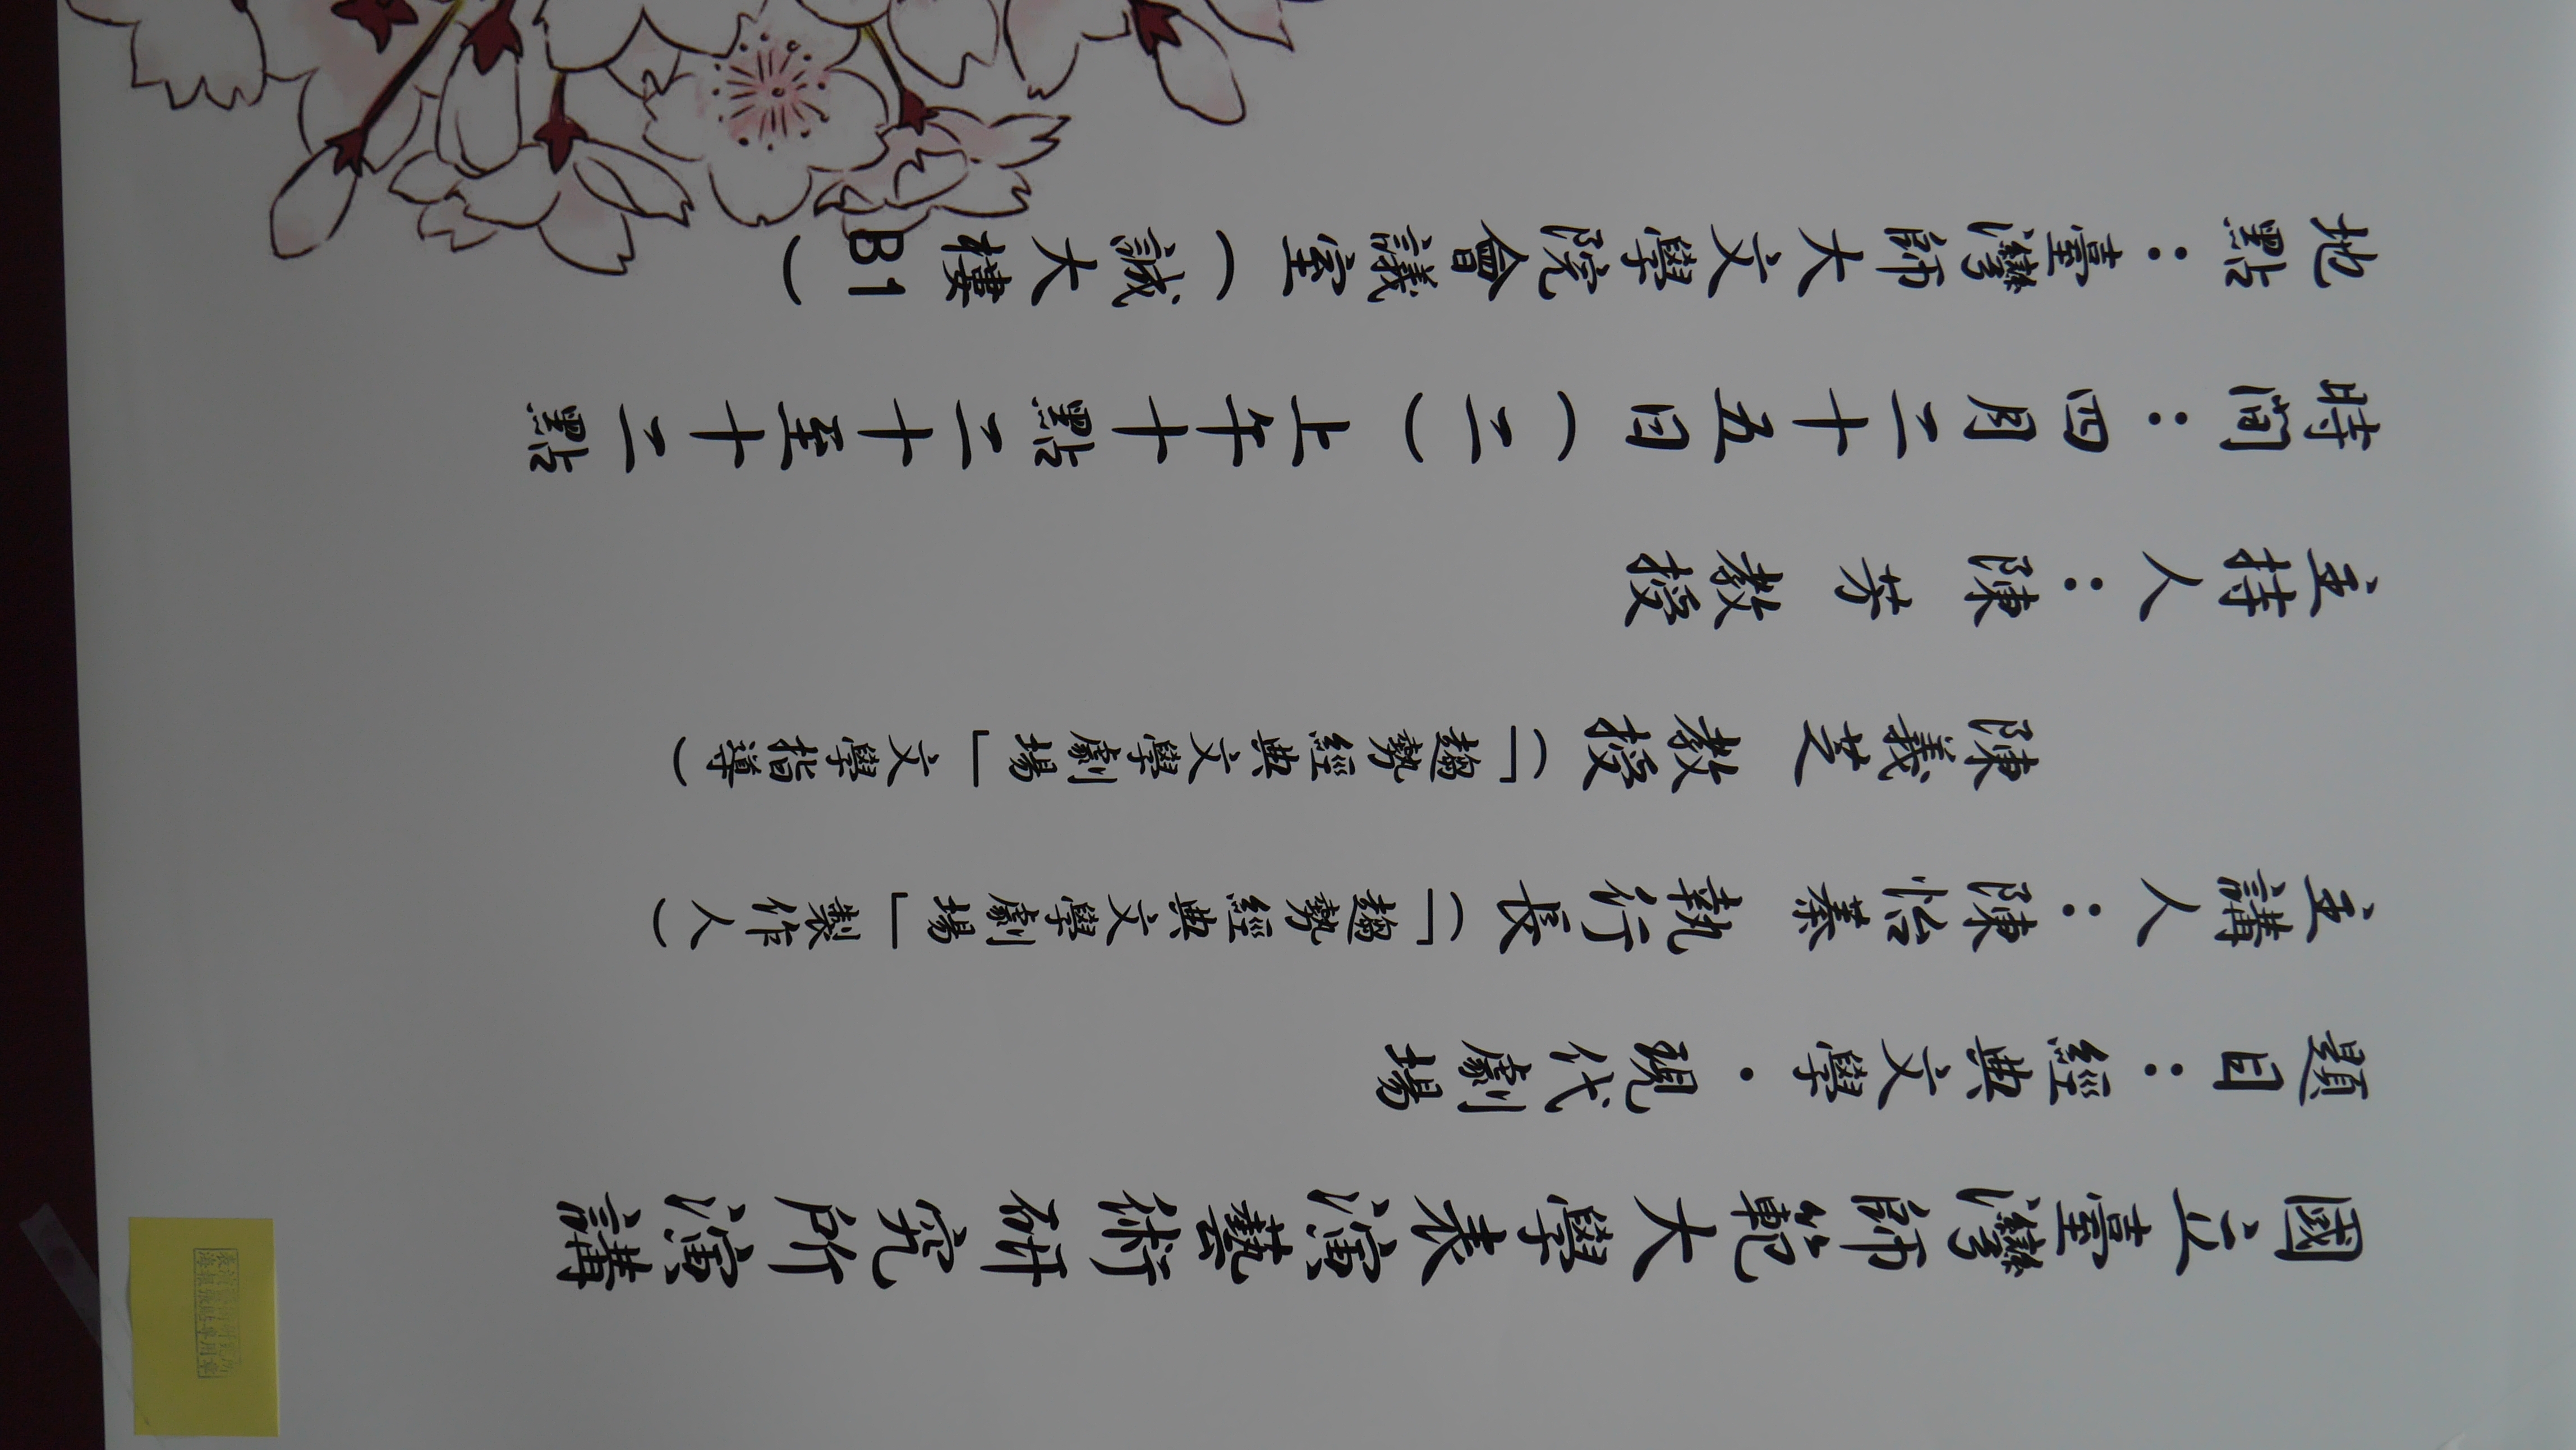 國立臺灣師範大學表演藝術研究所演講
題目：經典文學・現代劇場
主講人：陳怡蓁 執行長（「趨勢經典文學劇場」製作人）
陳義芝 教授（「趨勢經典文學劇場」文學指導）
主持人：陳 芳 教授
時間：四月二十五日（二）上午十點二十至十二點
地點：臺灣師大文學院會議室（誠大樓B1）
表演藝術研究所
海報張貼專用章